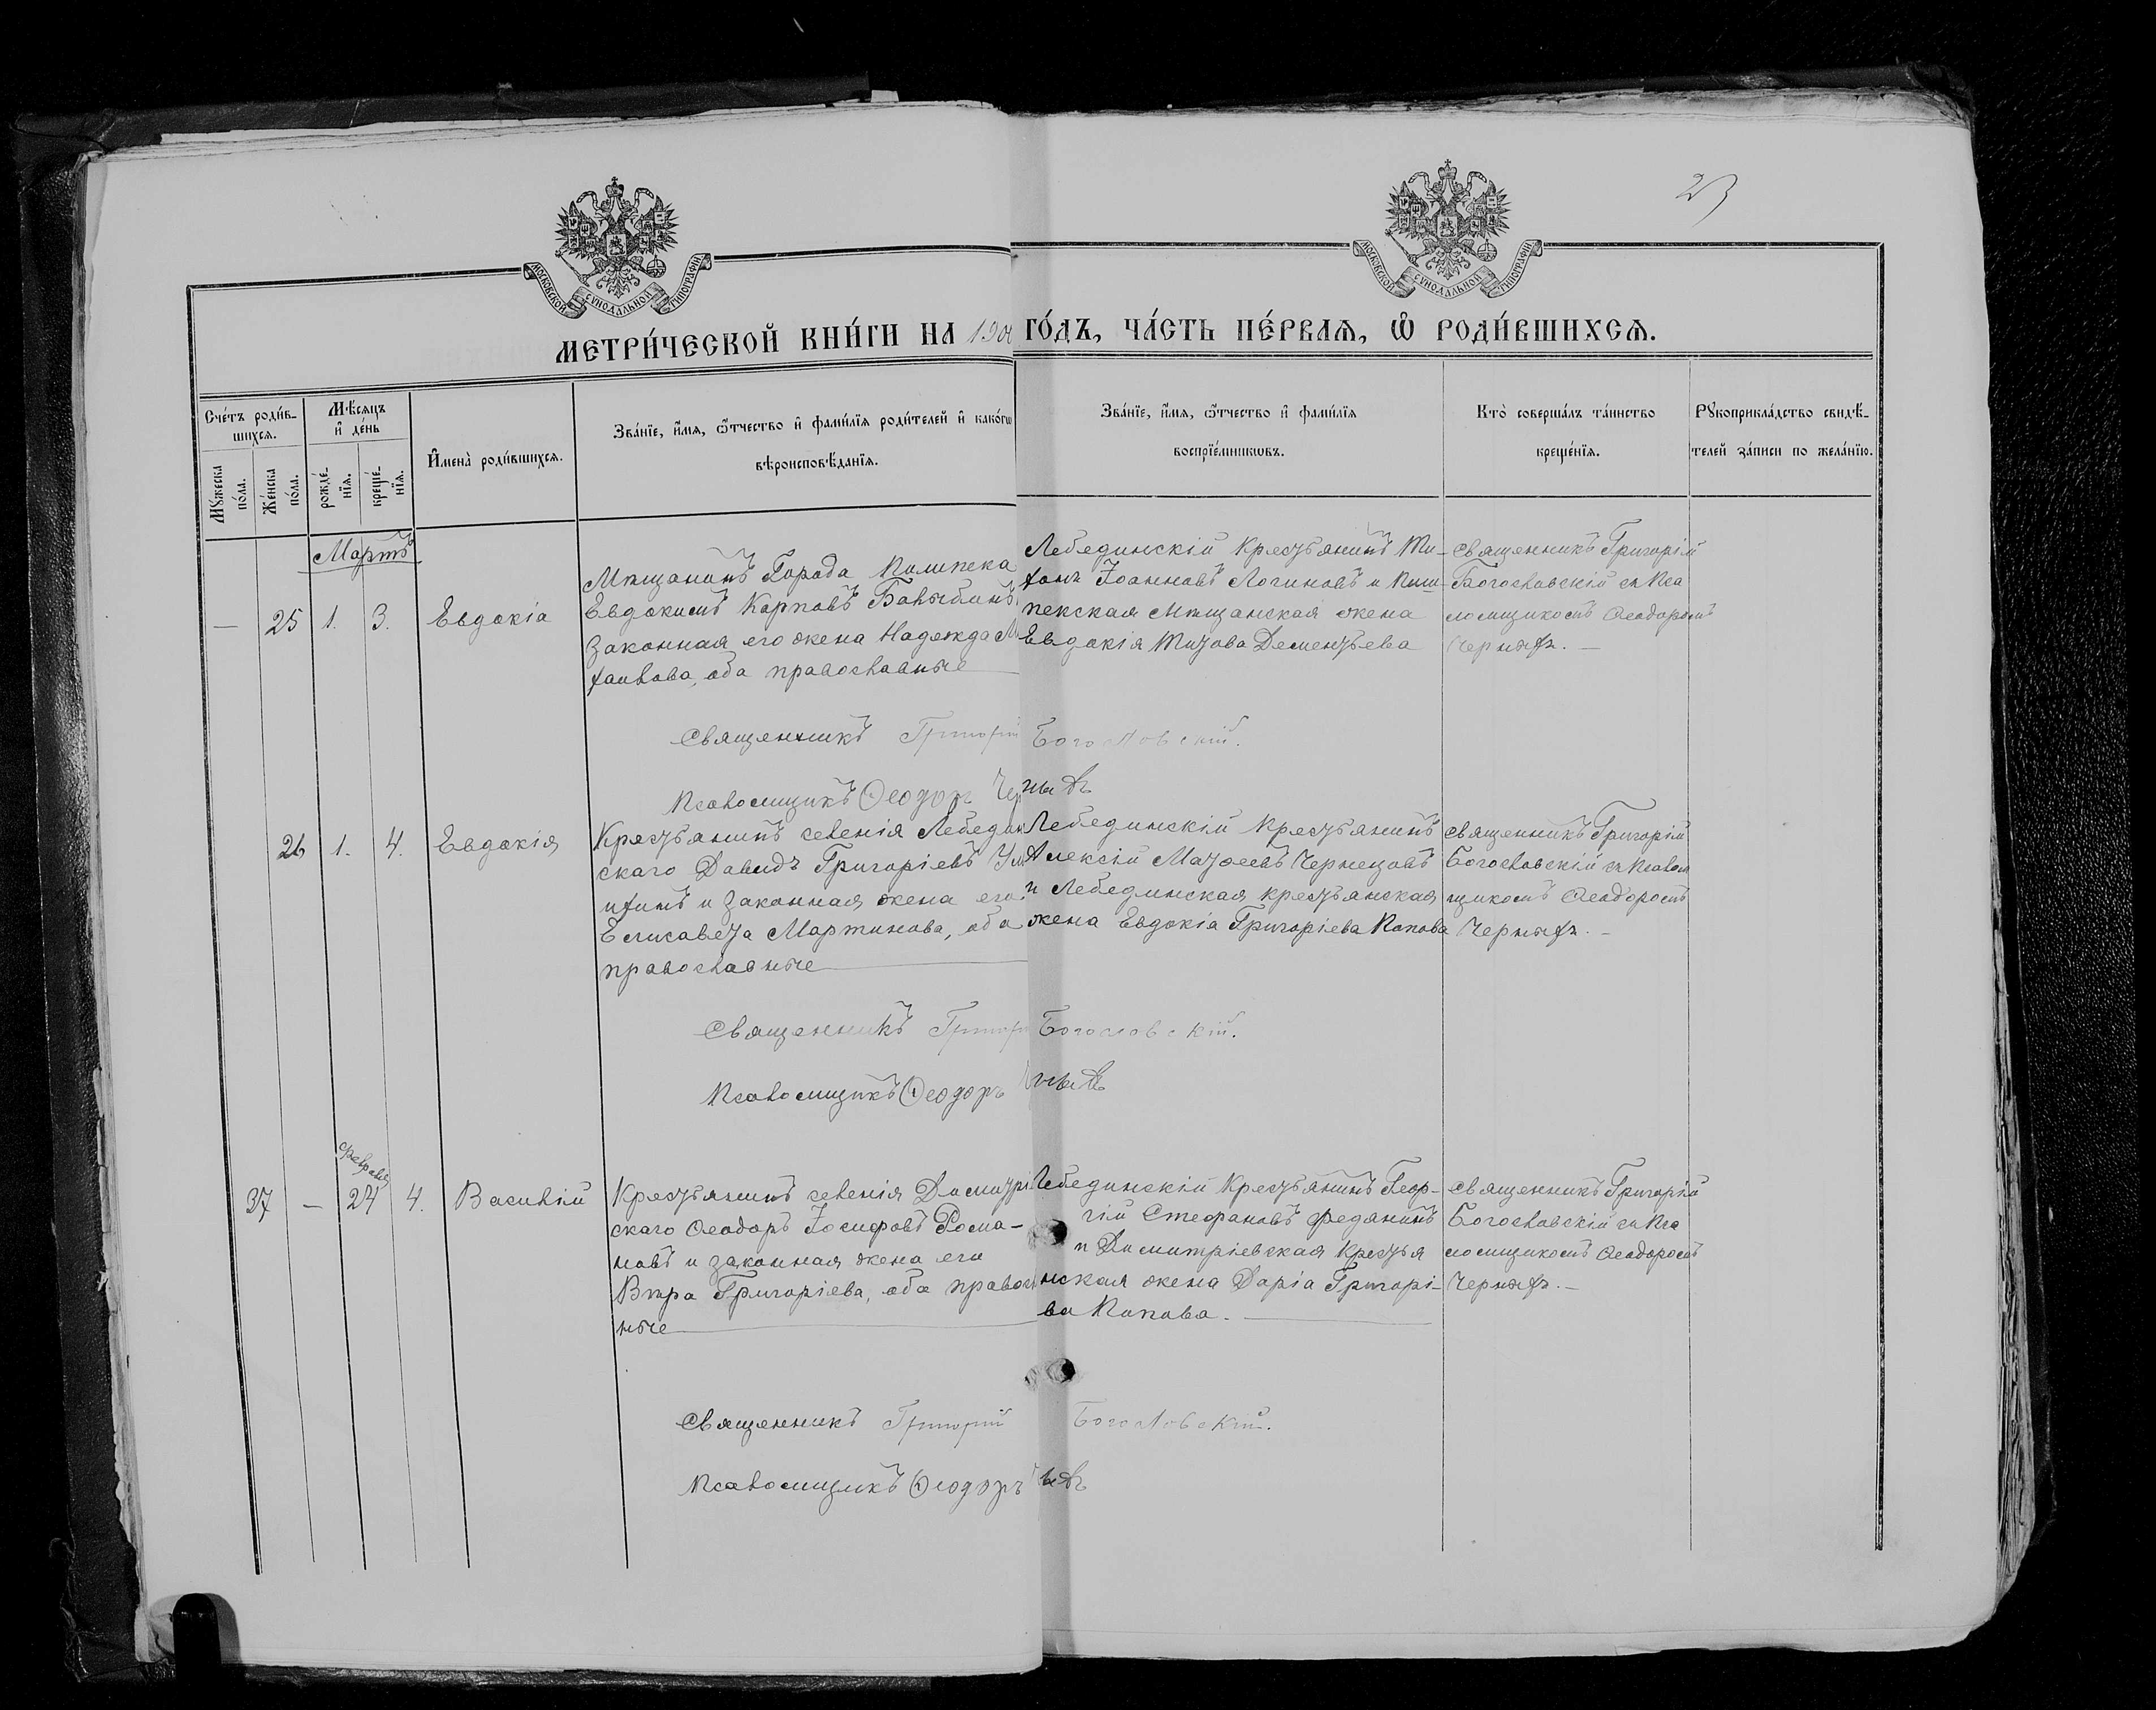 23
МОСКОВСКОЙ СѴНОДАЛЬНОЙ ТИПОГРАФІИ
МОСКОВСКОЙ СѴНОДАЛЬНОЙ ТИПОГРАФІИ
МЕТРИ́ЧЕСКОЙ КНИ́ГИ НА 190
ГО́ДЪ, ЧА́СТЬ ПЕ́РВАЯ, Ѡ҆ РОДИ́ВШИХСЯ.
Сче́тъ роди́в-
шихся.
Мѣ́сяцъ
и҆ де́нь
Мꙋ́жеска по́ла.
Же́нска по́ла.
рожде́-
нїя.
креще́-
нїя.
И҆мена̀ роди́вшихся.
Зва́нїе, и҆́мя, ѻ҆́тчество и҆ фами́лїя роди́телей и҆ како́гѡ
вѣроисповѣ́данїя.
Зва́нїе, и҆́мя, ѻ҆́тчество и҆ фами́лїя
воспрїе́мникѡвъ.
Кто̀ соверша́лъ та́инство
креще́нїя.
Рꙋкоприкла́дство свидѣ́-
телей за́писи по жела́нїю.
Мартъ
— 25 1. 3. Евдокіа
Мѣщанинъ Города Пишпека
Евдокимъ Карповъ
Законная его жена Надежда
оба православные
Лебединскій крестьянинъ Ти-
хонъ Іоанновъ Логиновъ и Пиш-
пекская Мѣщанская жена
Евдокія Титова Дементьева
Священникъ Григорій
Богославскій съ Пса
ломщикомъ Ѳеодоромъ
Священникъ Григорій Богословскій.
Псаломщикъ Ѳеодоръ
26 1. 4. Евдокія
Крестьянинъ селенія Лебедин
скаго Давидъ Григоріевъ
и законная жена его
Елисавета Мартинова, оба
православные
Лебединскій крестьянинъ
Алексій Матѳеевъ Чернецовъ
и Лебединская крестьянская
жена Евдокіа Григоріева Попова
Священникъ Григорій
Богославскій съ Псалом
щикомъ Ѳеодоромъ
Священникъ Богословскій.
Псаломщикъ Ѳеодоръ
Февраля
37 — 24 4. Василій
Крестьянинъ селенія Димитрі
скаго Ѳеодоръ Іосифовъ Рома-
новъ и законная жена его
Вѣра Григоріева, оба правосл
ные
Лебединскій Крестьянинъ Геор-
гій Стефановъ Федянинъ
и Димитріевская Крестья
нская жена Даріа Григорі-
ва Попова.
Священникъ Григорій
Богославскій съ Пса
ломщикомъ Ѳеодоромъ
Священникъ Григорій Богословскій.
Псаломщикъ Ѳеодоръ